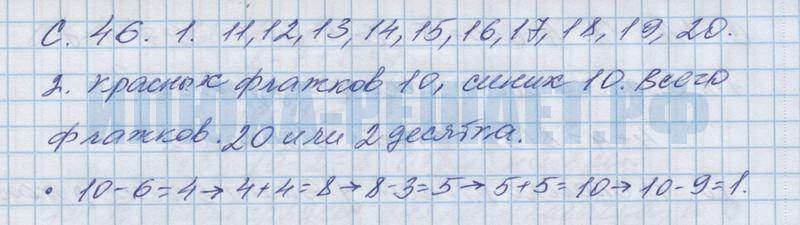 С. 46. 1. 11, 12, 13, 14, 15, 16, 17, 18, 19, 20.
2. Красных флажков 10, синих 10. Всего
флажков. 20 или 2 десятка.
• 10-6=4→4+4=8→8-3=5→5+5=10→10-9=1.